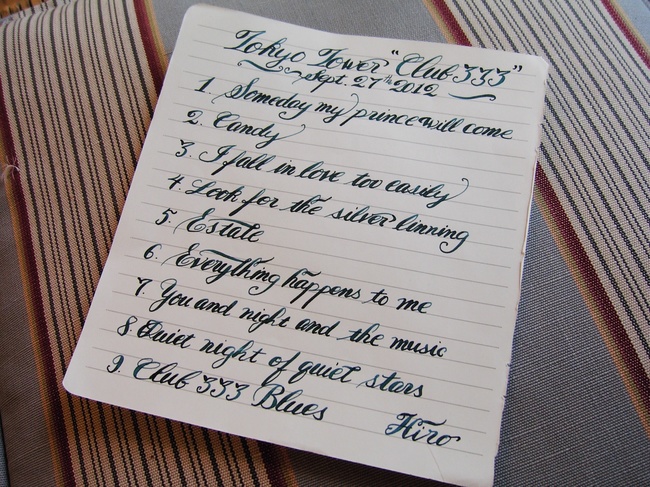 Tokyo Tower "Club 333"
Sept. 27th 2012
1. Someday my prince will come
2. Candy
3. I fall in love too easily
4. Look for the silver linning
5. Estate
6. Everything happens to me
7. You and night and the music
8. Quiet night of quiet stars
9. Club 333 Blues
Hiro